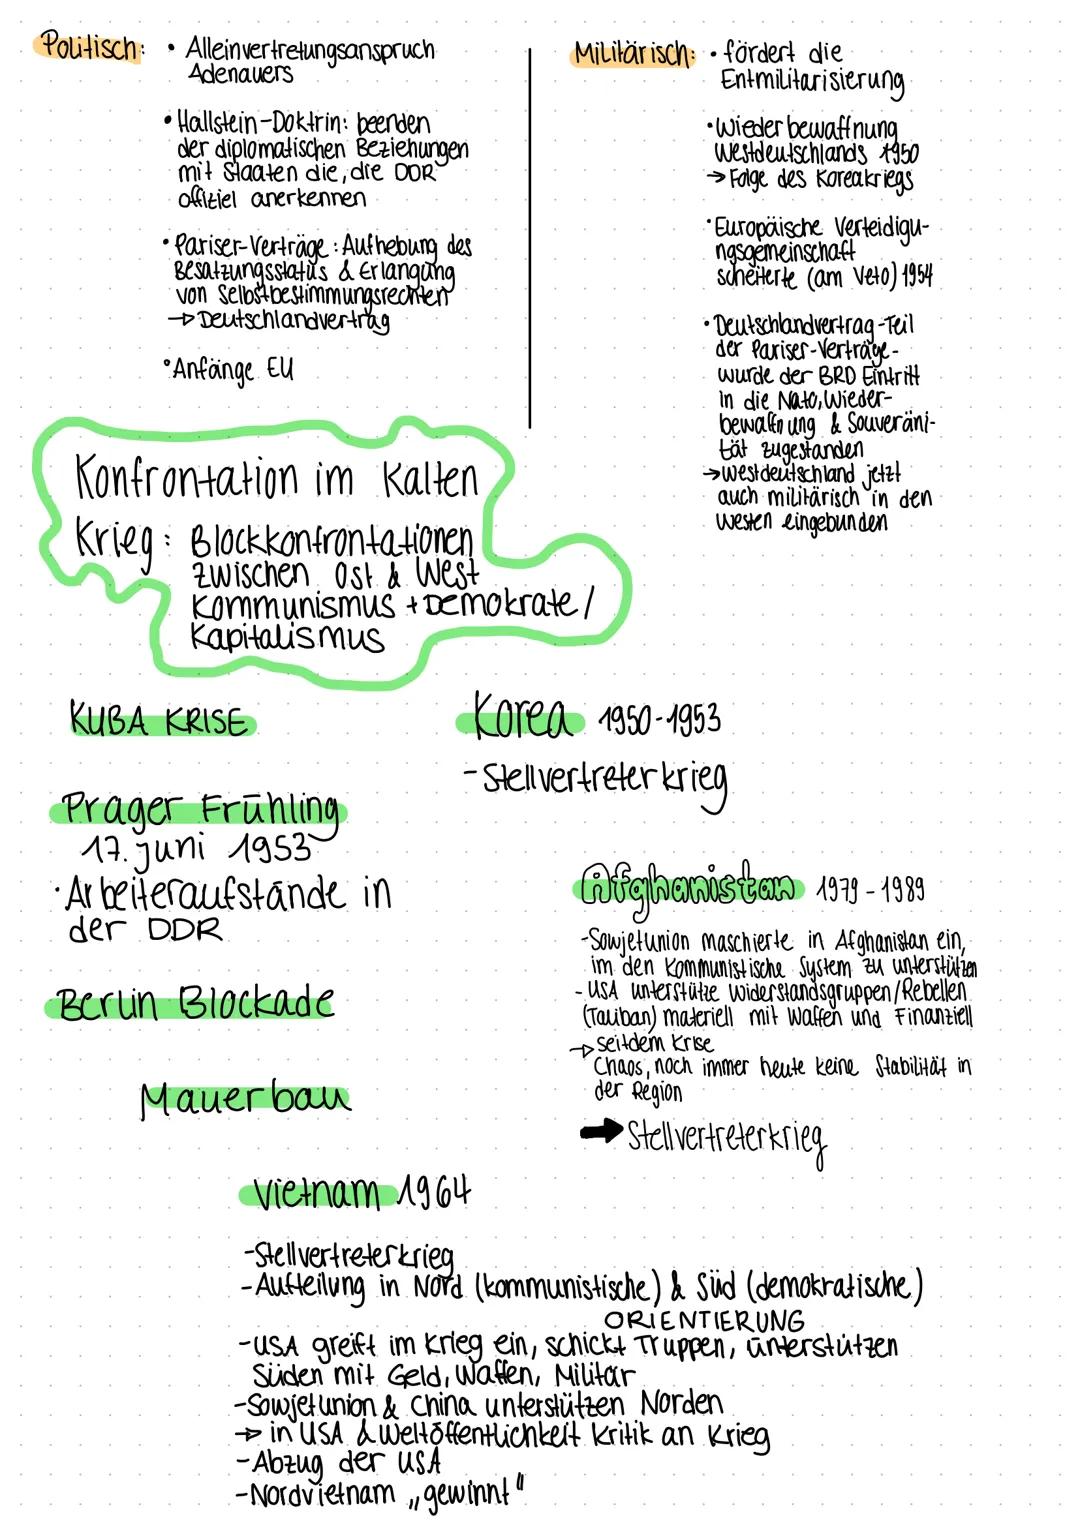 Politisch:
• Alleinvertretungsanspruch
Adenauers
• Hallstein-Doktrin: beenden
der diplomatischen Beziehungen
mit Staaten die, die DDR
offiziel anerkennen
• Pariser-Verträge: Aufhebung des
Besatzungsstatus & Erlangung
von Selbstbestimmungsrechten
→ Deutschlandvertrag
• Anfänge EU
Militärisch:
• fördert die
Entmilitarisierung
• Wiederbewaffnung
Westdeutschlands 1950
→ Folge des Koreakriegs
• Europäische Verteidigu-
ngsgemeinschaft
scheiterte (am Veto) 1954
• Deutschlandvertrag -Teil
der Pariser-Verträge-
wurde der BRD Eintritt
in die Nato, Wieder-
bewaffnung & Souveräni-
tät zugestanden
→ Westdeutschland jetzt
auch militärisch in den
Westen eingebunden
Konfrontation im Kalten
Krieg: Blockkonfrontationen
zwischen Ost & West
Kommunismus + Demokrate/
Kapitalismus
KUBA KRISE
Prager Frühling
17. Juni 1953
• Arbeiteraufstände in
der DDR
Berlin Blockade
Mauerbau
Korea 1950-1953
- Stellvertreterkrieg
Afghanistan 1979-1989
- Sowjetunion maschierte in Afghanistan ein,
im den Kommunistische System zu unterstützen
- USA unterstütze Widerstandsgruppen/Rebellen
(Tauban) materiell mit Waffen und Finanziell
→ seitdem Krise
Chaos, noch immer heute keine Stabilität in
der Region
→ Stellvertreterkrieg
Vietnam 1964
- Stellvertreterkrieg
- Aufteilung in Nord (kommunistische) & Süd (demokratische)
ORIENTIERUNG
- USA greift im Krieg ein, schickt Truppen, unterstützen
Süden mit Geld, Waffen, Militär
- Sowjetunion & China unterstützen Norden
→ in USA & Weltöffentlichkeit Kritik an Krieg
- Abzug der USA
- Nordvietnam „gewinnt"